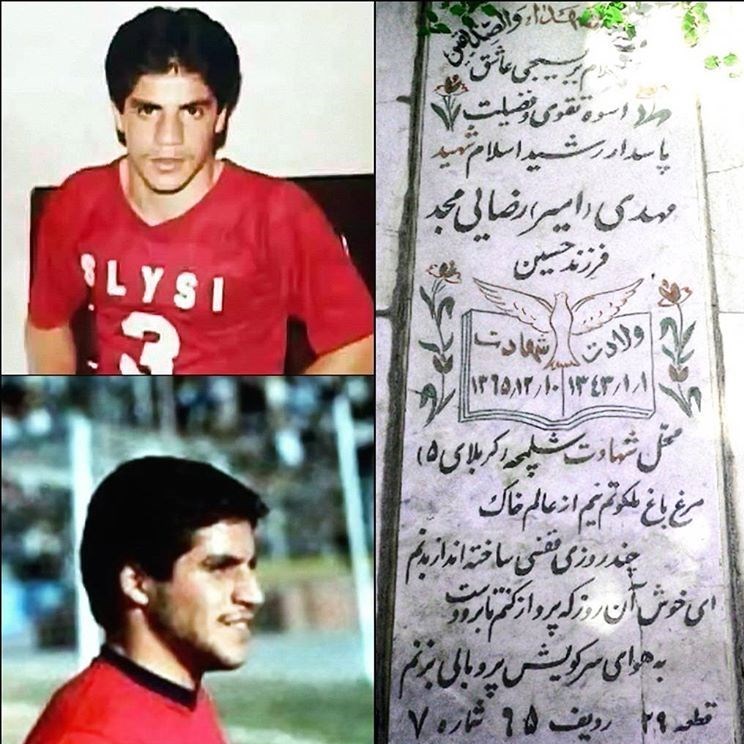 SLYSI
3
والصدیقین
بسیجی عاشق
اسوه تقوی و فضیلت
پاسدار رشید اسلام شهید
مهدی (امیر) رضایی مجد
فرزند حسین
ولادت شهادت
۱۳۴۳،۱،۱ ۱۳۶۵،۱۲،۱۰
محل شهادت شلمچه (کربلای ۵)
مرغ باغ ملکوتم نیم از عالم خاک
چند روزی قفسی ساخته اند از بدنم
ای خوش آن روز که پرواز کنم تا بر دوست
به هوای سر کویش پر و بالی بزنم
قطعه ۲۹ ردیف ۶۵ شماره ۷